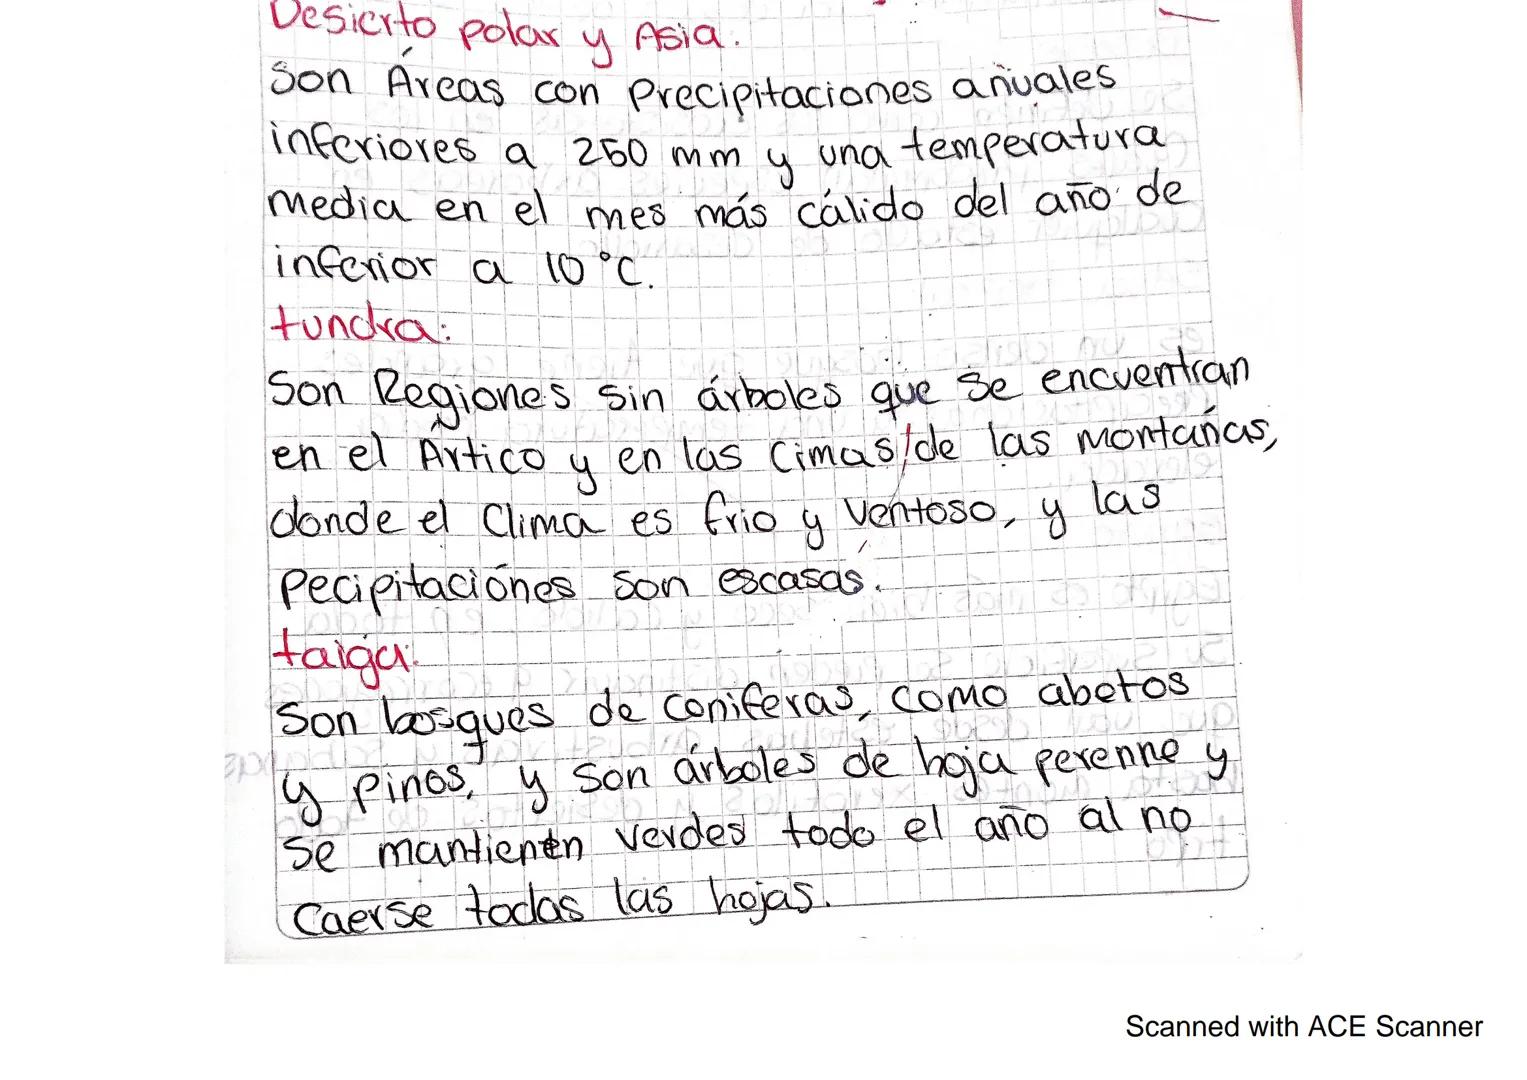 Desierto polar y Asia.
Son Áreas con Precipitaciones añuales
inferiores a 250 mm y una temperatura
media en el mes más cálido del año de
inferior a 10 °C.
tundra:
Son Regiones sin árboles que se encuentran
en el Ártico y en las Cimas/de las montañas,
donde el Clima es frio y Ventoso, y las
Pecipitaciónes son escasas.
taiga:
Son bosques de coniferas, como abetos
y pinos, y son árboles de hoja perenne y
se mantienen verdes todo el año al no
Caerse todas las hojas.
Scanned with ACE Scanner